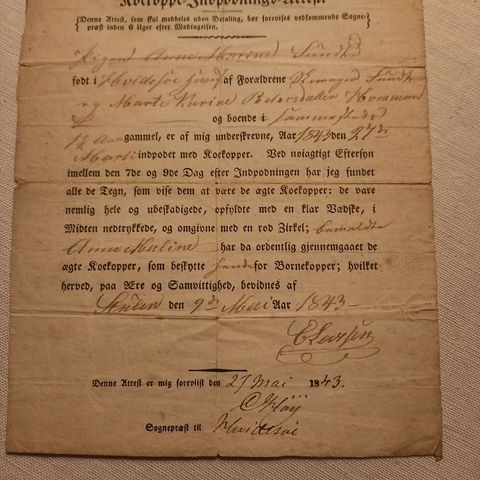 Koekoppe-Indpodnings-Attest.
(Denne Attest, som skal meddeles uden Betaling, bør forevises vedkommende Sogne-
præst inden 8 Uger efter Modtagelsen.)
Pigen Anne Maline
født i Hvidesøe af Forældrene
og Marte Karine Pedersdatter
og boende i sammesteds
1½ Aar gammel, er af mig underskrevne, Aar 1843 den 27de
Marti indpodet med Koekopper. Ved nøiagtigt Eftersyn
imellem den 7de og 9de Dag efter Indpodningen har jeg fundet
alle de Tegn, som vise dem at være de ægte Koekopper: de vare
nemlig hele og ubeskadigede, opfyldte med en klar Vædske, i
Midten nedtrykkede, og omgivne med en rød Zirkel; bemeldte
Anne Maline har da ordentlig gjennemgaaet de
ægte Koekopper, som beskytte hende for Børnekopper; hvilket
herved, paa Ære og Samvittighed, bevidnes af
den 9de Mai Aar 1843
Denne Attest er mig forevist den 27 Mai 1843.
Sognepræst til Hvidesøe